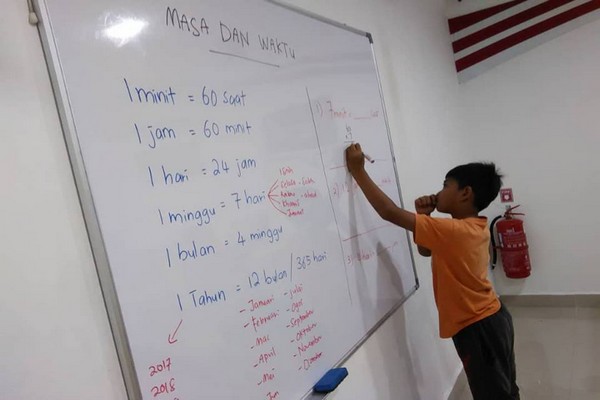 MASA DAN WAKTU
1 minit = 60 saat
1 jam = 60 minit
1 hari = 24 jam
1 minggu = 7 hari
1 bulan = 4 minggu
1 Tahun = 12 bulan / 365 hari
- Januari - Julai
- Februari - Ogos
- Mac - September
- April - Oktober
- Mei - November
- Jun - Disember
2017
2018
1) 7 minit =
2)
3)